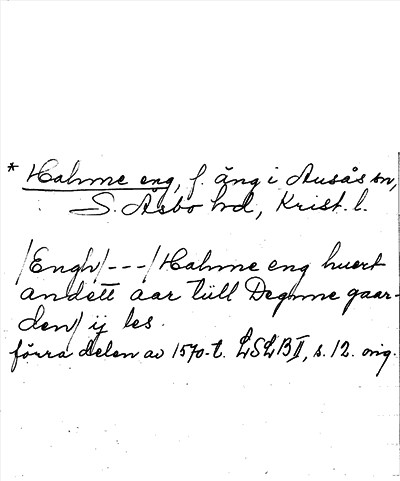 * Hahme eng, f. äng i Ausås sn,
S. Åsbo hd, Krist. l.
/Engh/---/Hahme eng huert
andett aar tüll Degnne gaar-
den/ ij les.
förra delen av 1570-t. LSLB II, s. 12. orig.